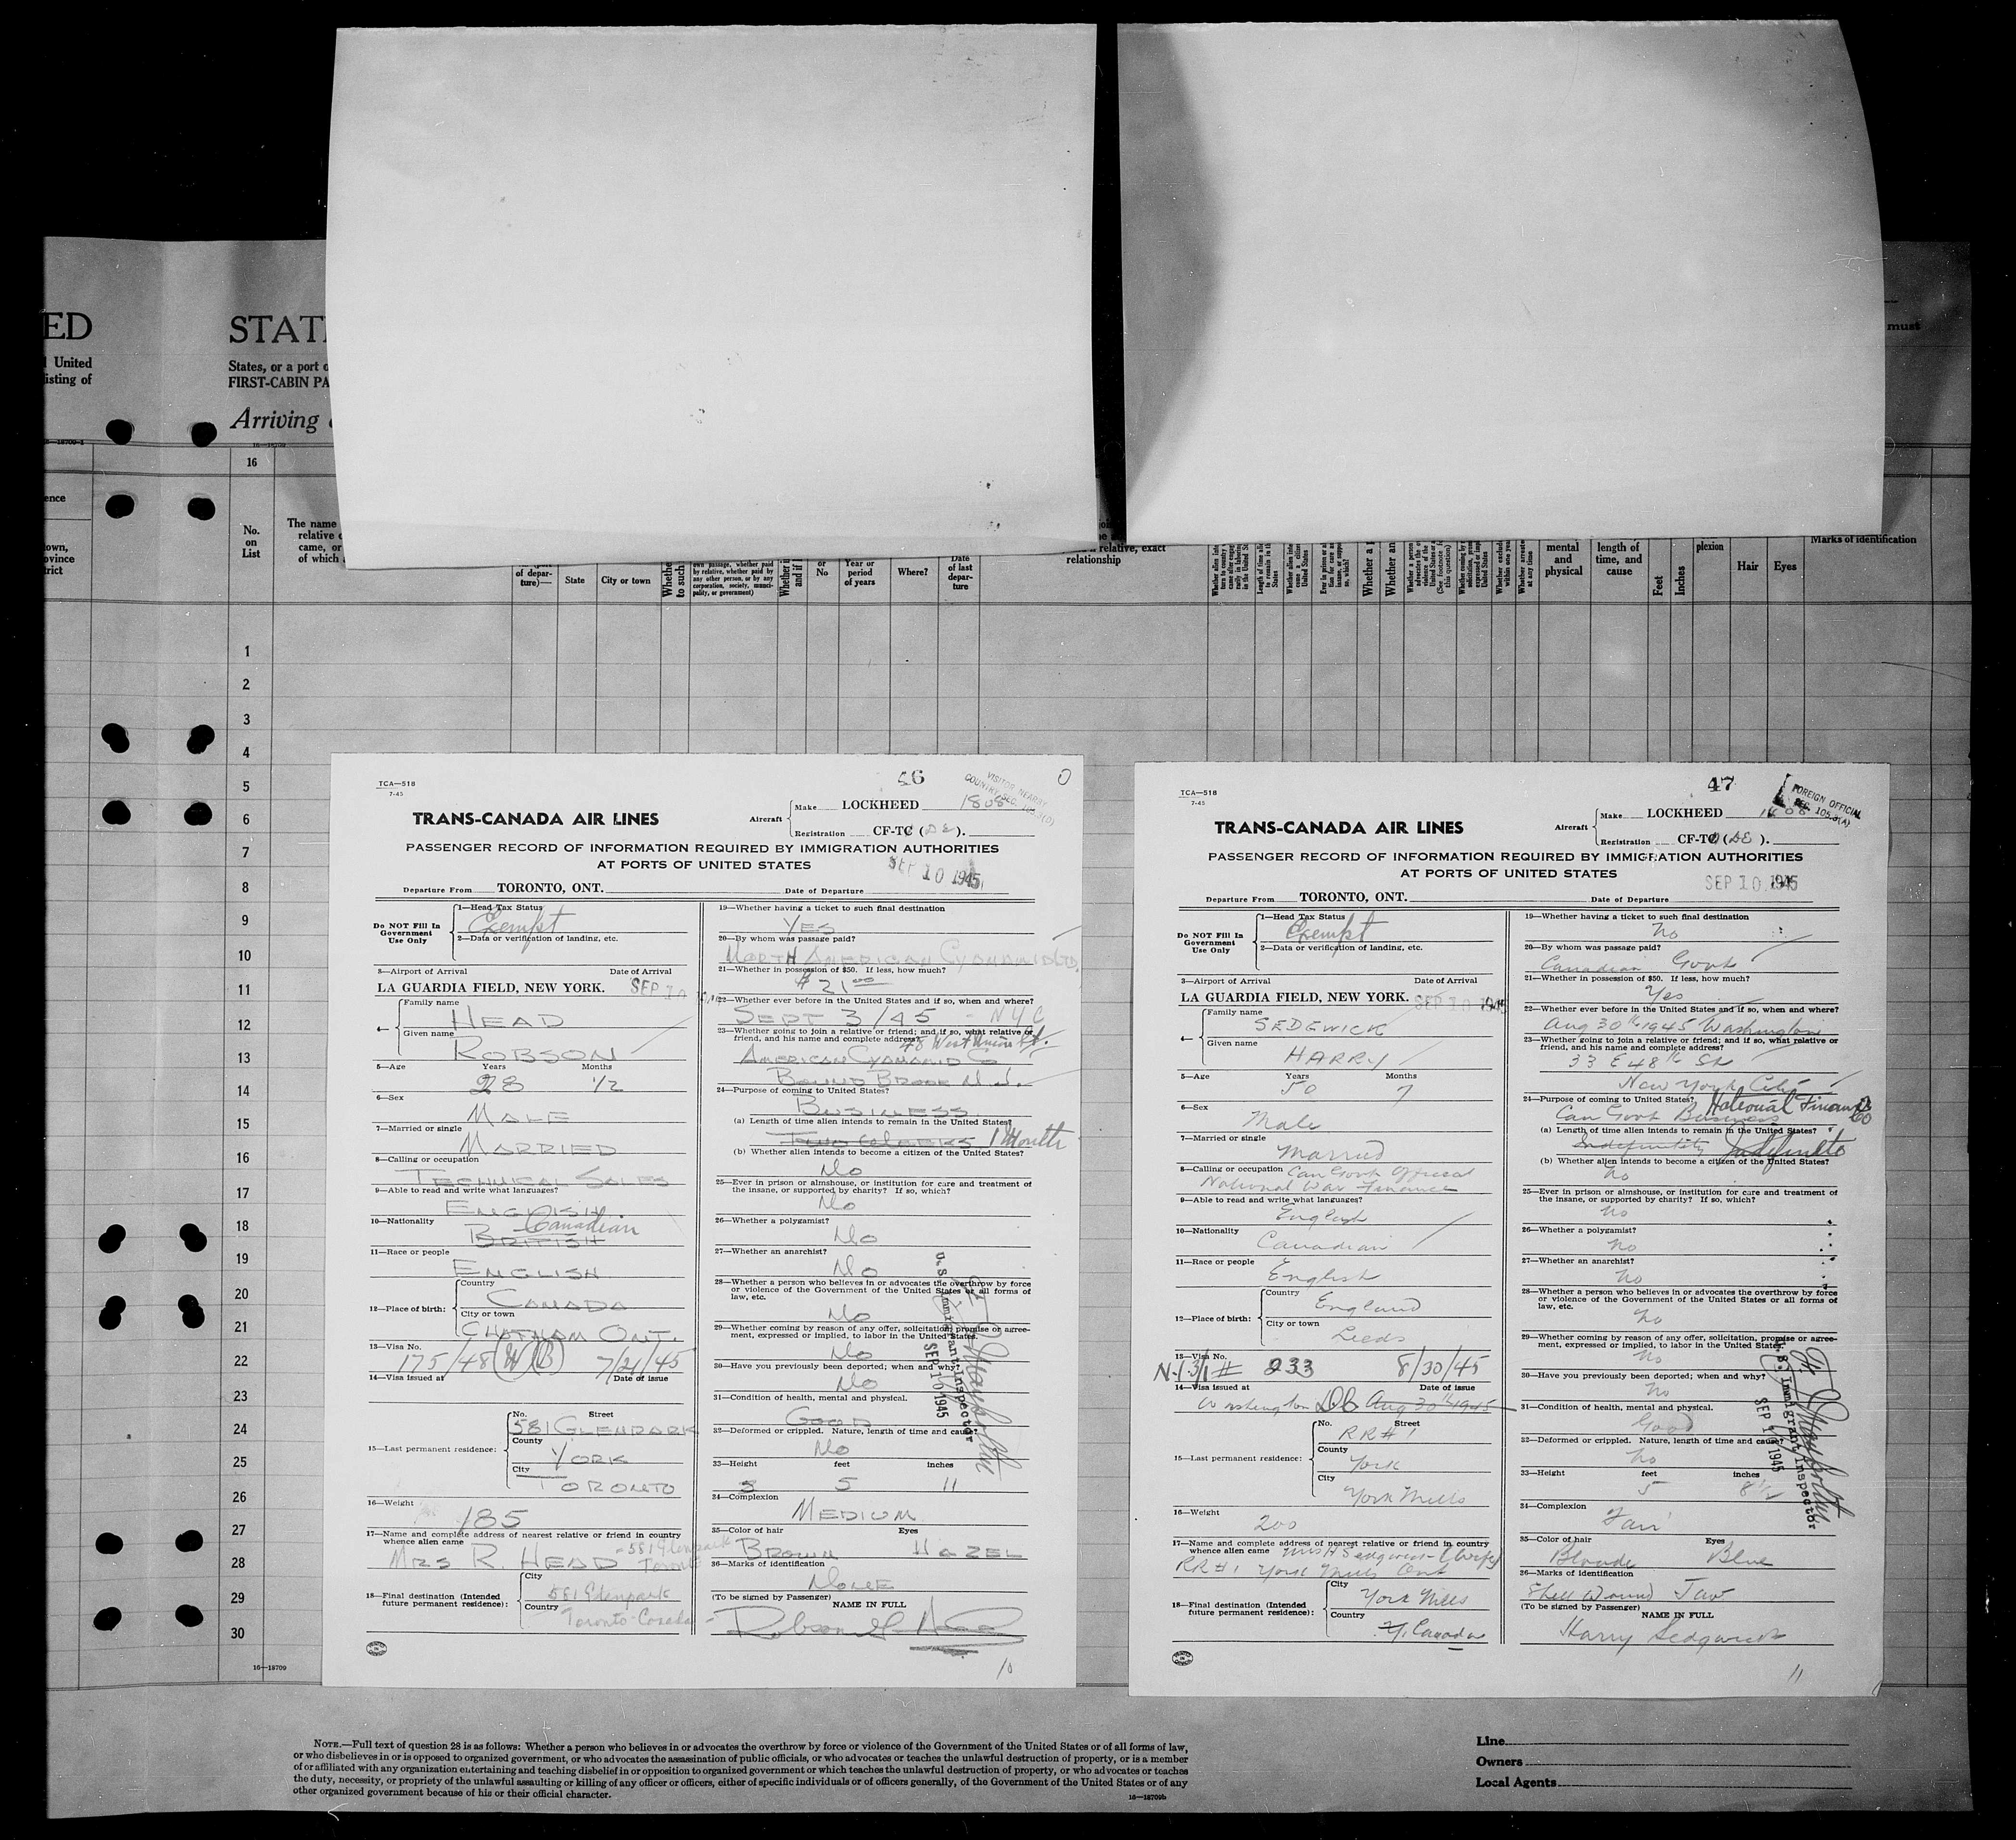 ED
l United
isting of
STAT
States, or a port o
FIRST-CABIN PA
Arriving
must
16—18709
16
ence
own,
ovince
trict
No.
on
List
The name
relative o
came, or
of which
of depar-
ture)—
State
City or town
Whethe
to such
own passage, whether paid
by relative, whether paid by
any other person, or by any
corporation, society, munici-
pality, or government)
Whether
and if
or
No
Year or
period
of years
Where?
Date
of last
depar-
ture
relative, exact
relationship
mental
and
physical
length of
time, and
cause
Feet
Inches
plexion
Hair
Eyes
Marks of identification
1
2
3
4
5
6
7
8
9
10
11
12
13
14
15
16
17
18
19
20
21
22
23
24
25
26
27
28
29
30
16—18709
TCA—518
7-43
56
VISITOR NEARBY
COUNTRY SEC.
O
TRANS-CANADA AIR LINES
Aircraft
Make LOCKHEED 1808
Registration CF-TC (DE).
PASSENGER RECORD OF INFORMATION REQUIRED BY IMMIGRATION AUTHORITIES
AT PORTS OF UNITED STATES
SEP 10 1945
Departure From TORONTO, ONT. Date of Departure
Do NOT Fill In
Government
Use Only
1—Head Tax Status
Exempt
2—Data or verification of landing, etc.
3—Airport of Arrival Date of Arrival
LA GUARDIA FIELD, NEW YORK. SEP 10
4—
Family name
HEAD
Given name
ROBSON
5—Age Years Months
28 1/2
6—Sex
MALE
7—Married or single
MARRIED
8—Calling or occupation
TECHNICAL SALES
9—Able to read and write what languages?
ENGLISH
10—Nationality Canadian
BRITISH
11—Race or people
ENGLISH
12—Place of birth:
Country
CANADA
City or town
CHATHAM ONT.
13—Visa No.
175/48 7/21/45
14—Visa issued at Date of issue
15—Last permanent residence:
No. Street
581 GLENPARK
County
YORK
City
TORONTO
16—Weight
185
17—Name and complete address of nearest relative or friend in country
whence alien came
MRS R. HEAD - 581 Glenpark
Toronto
18—Final destination (Intended
future permanent residence):
City
581 Glenpark
Country
Toronto-Canada
19—Whether having a ticket to such final destination
YES
20—By whom was passage paid?
NORTH AMERICAN CYANAMID LTD.
21—Whether in possession of $50. If less, how much?
$ 21 00
22—Whether ever before in the United States and if so, when and where?
SEPT 3/45 - NYC
23—Whether going to join a relative or friend; and if so, what relative or
friend, and his name and complete address?
AMERICAN CYANAMID Co
BOUND BROOK N.J.
24—Purpose of coming to United States?
BUSINESS
(a) Length of time alien intends to remain in the United States?
TWO WEEKS 1 Month
(b) Whether alien intends to become a citizen of the United States?
No
25—Ever in prison or almshouse, or institution for care and treatment of
the insane, or supported by charity? If so, which?
No
26—Whether a polygamist?
No
27—Whether an anarchist?
No
28—Whether a person who believes in or advocates the overthrow by force
or violence of the Government of the United States or all forms of
law, etc.
No
29—Whether coming by reason of any offer, solicitation, promise or agree-
ment, expressed or implied, to labor in the United States.
No
30—Have you previously been deported; when and why?
No
31—Condition of health, mental and physical.
GOOD
32—Deformed or crippled. Nature, length of time and cause?
No
33—Height feet inches
5 11
34—Complexion
MEDIUM
35—Color of hair Eyes
BROWN HAZEL
36—Marks of identification
NONE
(To be signed by Passenger) NAME IN FULL
U.S. Immigrant Inspector
SEP 10 1945
10
TCA—518
7-43
47
FOREIGN OFFICIAL
SEC. 105.3(A)
TRANS-CANADA AIR LINES
Aircraft
Make LOCKHEED 1808
Registration CF-TC (DE).
PASSENGER RECORD OF INFORMATION REQUIRED BY IMMIGRATION AUTHORITIES
AT PORTS OF UNITED STATES
SEP 10 1945
Departure From TORONTO, ONT. Date of Departure
Do NOT Fill In
Government
Use Only
1—Head Tax Status
Exempt
2—Data or verification of landing, etc.
3—Airport of Arrival Date of Arrival
LA GUARDIA FIELD, NEW YORK. SEP 10 1945
4—
Family name
SEDEWICK
Given name
HARRY
5—Age Years Months
50 7
6—Sex
Male
7—Married or single
Married
8—Calling or occupation Can Govt Official
National War Finance
9—Able to read and write what languages?
English
10—Nationality
Canadian
11—Race or people
English
12—Place of birth:
Country
England
City or town
Leeds
13—Visa No.
# 233 8/30/45
14—Visa issued at Date of issue
Washington DC Aug 30th 1945
15—Last permanent residence:
No. Street
RR#1
County
York
City
York Mills
16—Weight
200
17—Name and complete address of nearest relative or friend in country
whence alien came Mrs H Sedgwick-(Wife)
RR#1 York Mills Ont
18—Final destination (Intended
future permanent residence):
City
York Mills
Country
Canada
19—Whether having a ticket to such final destination
No
20—By whom was passage paid?
Canadian Govt
21—Whether in possession of $50. If less, how much?
Yes
22—Whether ever before in the United States and if so, when and where?
Aug 30th 1945 Washington
23—Whether going to join a relative or friend; and if so, what relative or
friend, and his name and complete address?
33 E 48th St
New York City
24—Purpose of coming to United States? National Finance
Can Govt Business
(a) Length of time alien intends to remain in the United States?
Indefinitely Indefinite
(b) Whether alien intends to become a citizen of the United States?
No
25—Ever in prison or almshouse, or institution for care and treatment of
the insane, or supported by charity? If so, which?
No
26—Whether a polygamist?
No
27—Whether an anarchist?
No
28—Whether a person who believes in or advocates the overthrow by force
or violence of the Government of the United States or all forms of
law, etc.
No
29—Whether coming by reason of any offer, solicitation, promise or agree-
ment, expressed or implied, to labor in the United States.
No
30—Have you previously been deported; when and why?
No
31—Condition of health, mental and physical.
Good
32—Deformed or crippled. Nature, length of time and cause?
No
33—Height feet inches
5 8 1/2
34—Complexion
Fair
35—Color of hair Eyes
Blonde Blue
36—Marks of identification
Shell Wound Jaw
(To be signed by Passenger) NAME IN FULL
Harry Sedgwick
U.S. Immigrant Inspector
SEP 10 1945
11
NOTE.—Full text of question 28 is as follows: Whether a person who believes in or advocates the overthrow by force or violence of the Government of the United States or of all forms of law,
or who disbelieves in or is opposed to organized government, or who advocates the assassination of public officials, or who advocates or teaches the unlawful destruction of property, or is a member
of or affiliated with any organization entertaining and teaching disbelief in or opposition to organized government or which teaches the unlawful destruction of property, or who advocates or teaches
the duty, necessity, or propriety of the unlawful assaulting or killing of any officer or officers, either of specific individuals or of officers generally, of the Government of the United States or of any
other organized government because of his or their official character.
16—18709b
Line
Owners
Local Agents